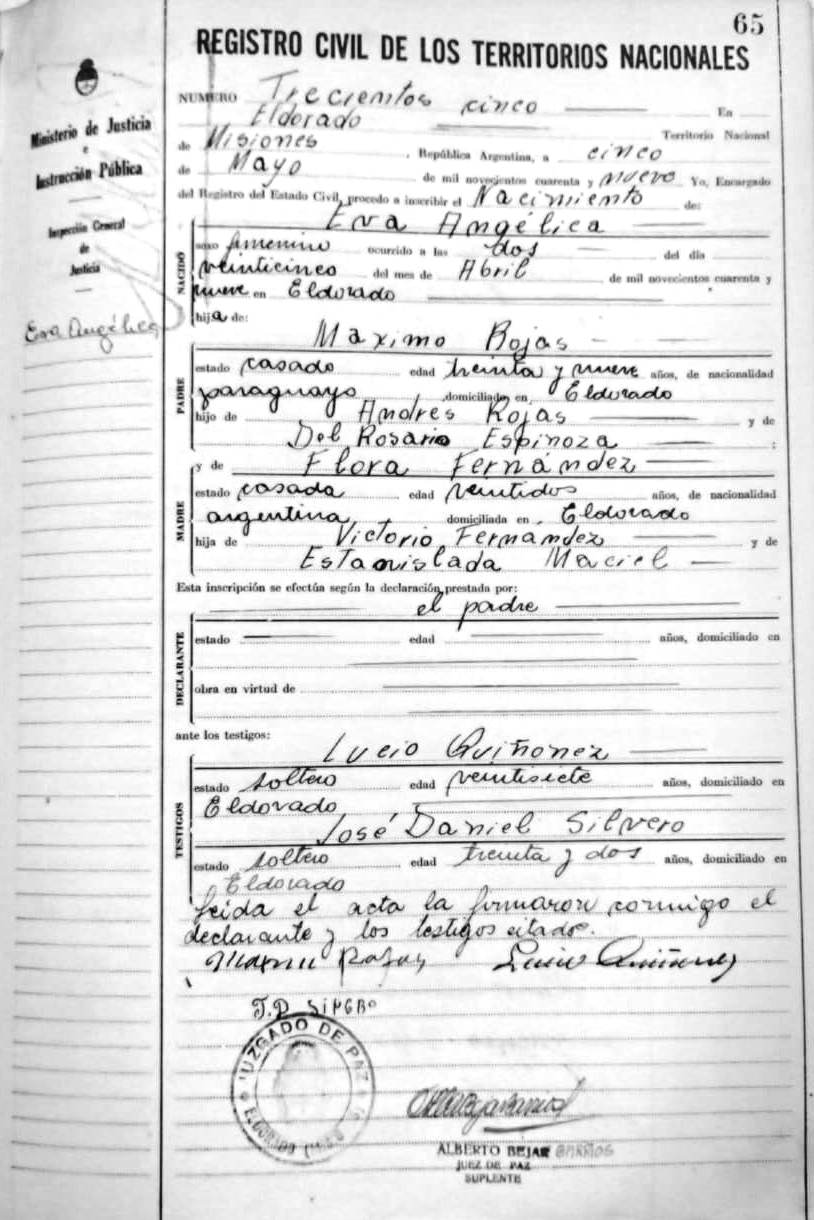 65
REGISTRO CIVIL DE LOS TERRITORIOS NACIONALES
Ministerio de Justicia
e
Instrucción Pública
Inspección General
de
Justicia
Eva Angélica
NUMERO Trecientos cinco En
Eldorado Territorio Nacional
de Misiones, República Argentina, a cinco
de Mayo de mil novecientos cuarenta y nueve Yo, Encargado
del Registro del Estado Civil, procedo a inscribir el Nacimiento de:
NACIDO
Eva Angélica
sexo femenino ocurrido a las dos del día
veinticinco del mes de Abril de mil novecientos cuarenta y
nueve en Eldorado
hija de:
PADRE
Maximo Rojas
estado casado edad treinta y nueve años, de nacionalidad
paraguayo domiciliado en Eldorado
hijo de Andres Rojas y de
Del Rosario Espinoza ;
MADRE
y de Flora Fernández
estado casada edad veintidos años, de nacionalidad
argentina domiciliada en Eldorado
hija de Victorio Fernandez y de
Estanislada Maciel
Esta inscripción se efectúa según la declaración prestada por:
el padre
DECLARANTE
estado edad años, domiciliado en
obra en virtud de
ante los testigos:
TESTIGOS
Lucio Quiñonez
estado soltero edad veintisiete años, domiciliado en
Eldorado
José Daniel Silvero
estado soltero edad treinta y dos años, domiciliado en
Eldorado
Leida el acta la firmaron conmigo el
declarante y los testigos citados.
Maximo Rojas Lucio Quiñonez
J.D
JUZGADO DE PAZ
ELDORADO
ALBERTO BEJAR BARRIOS
JUEZ DE PAZ
SUPLENTE